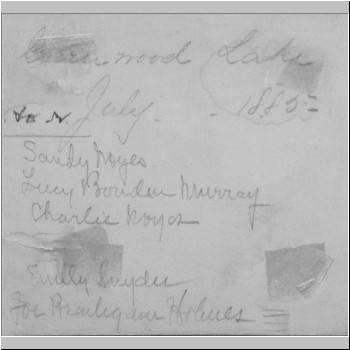 Greenwood Lake
July. - 1885
to r.
Sandy Noyes
Lucy Bowden Murray
Charlie Noyes
Emily Snyder
Joe Holmes